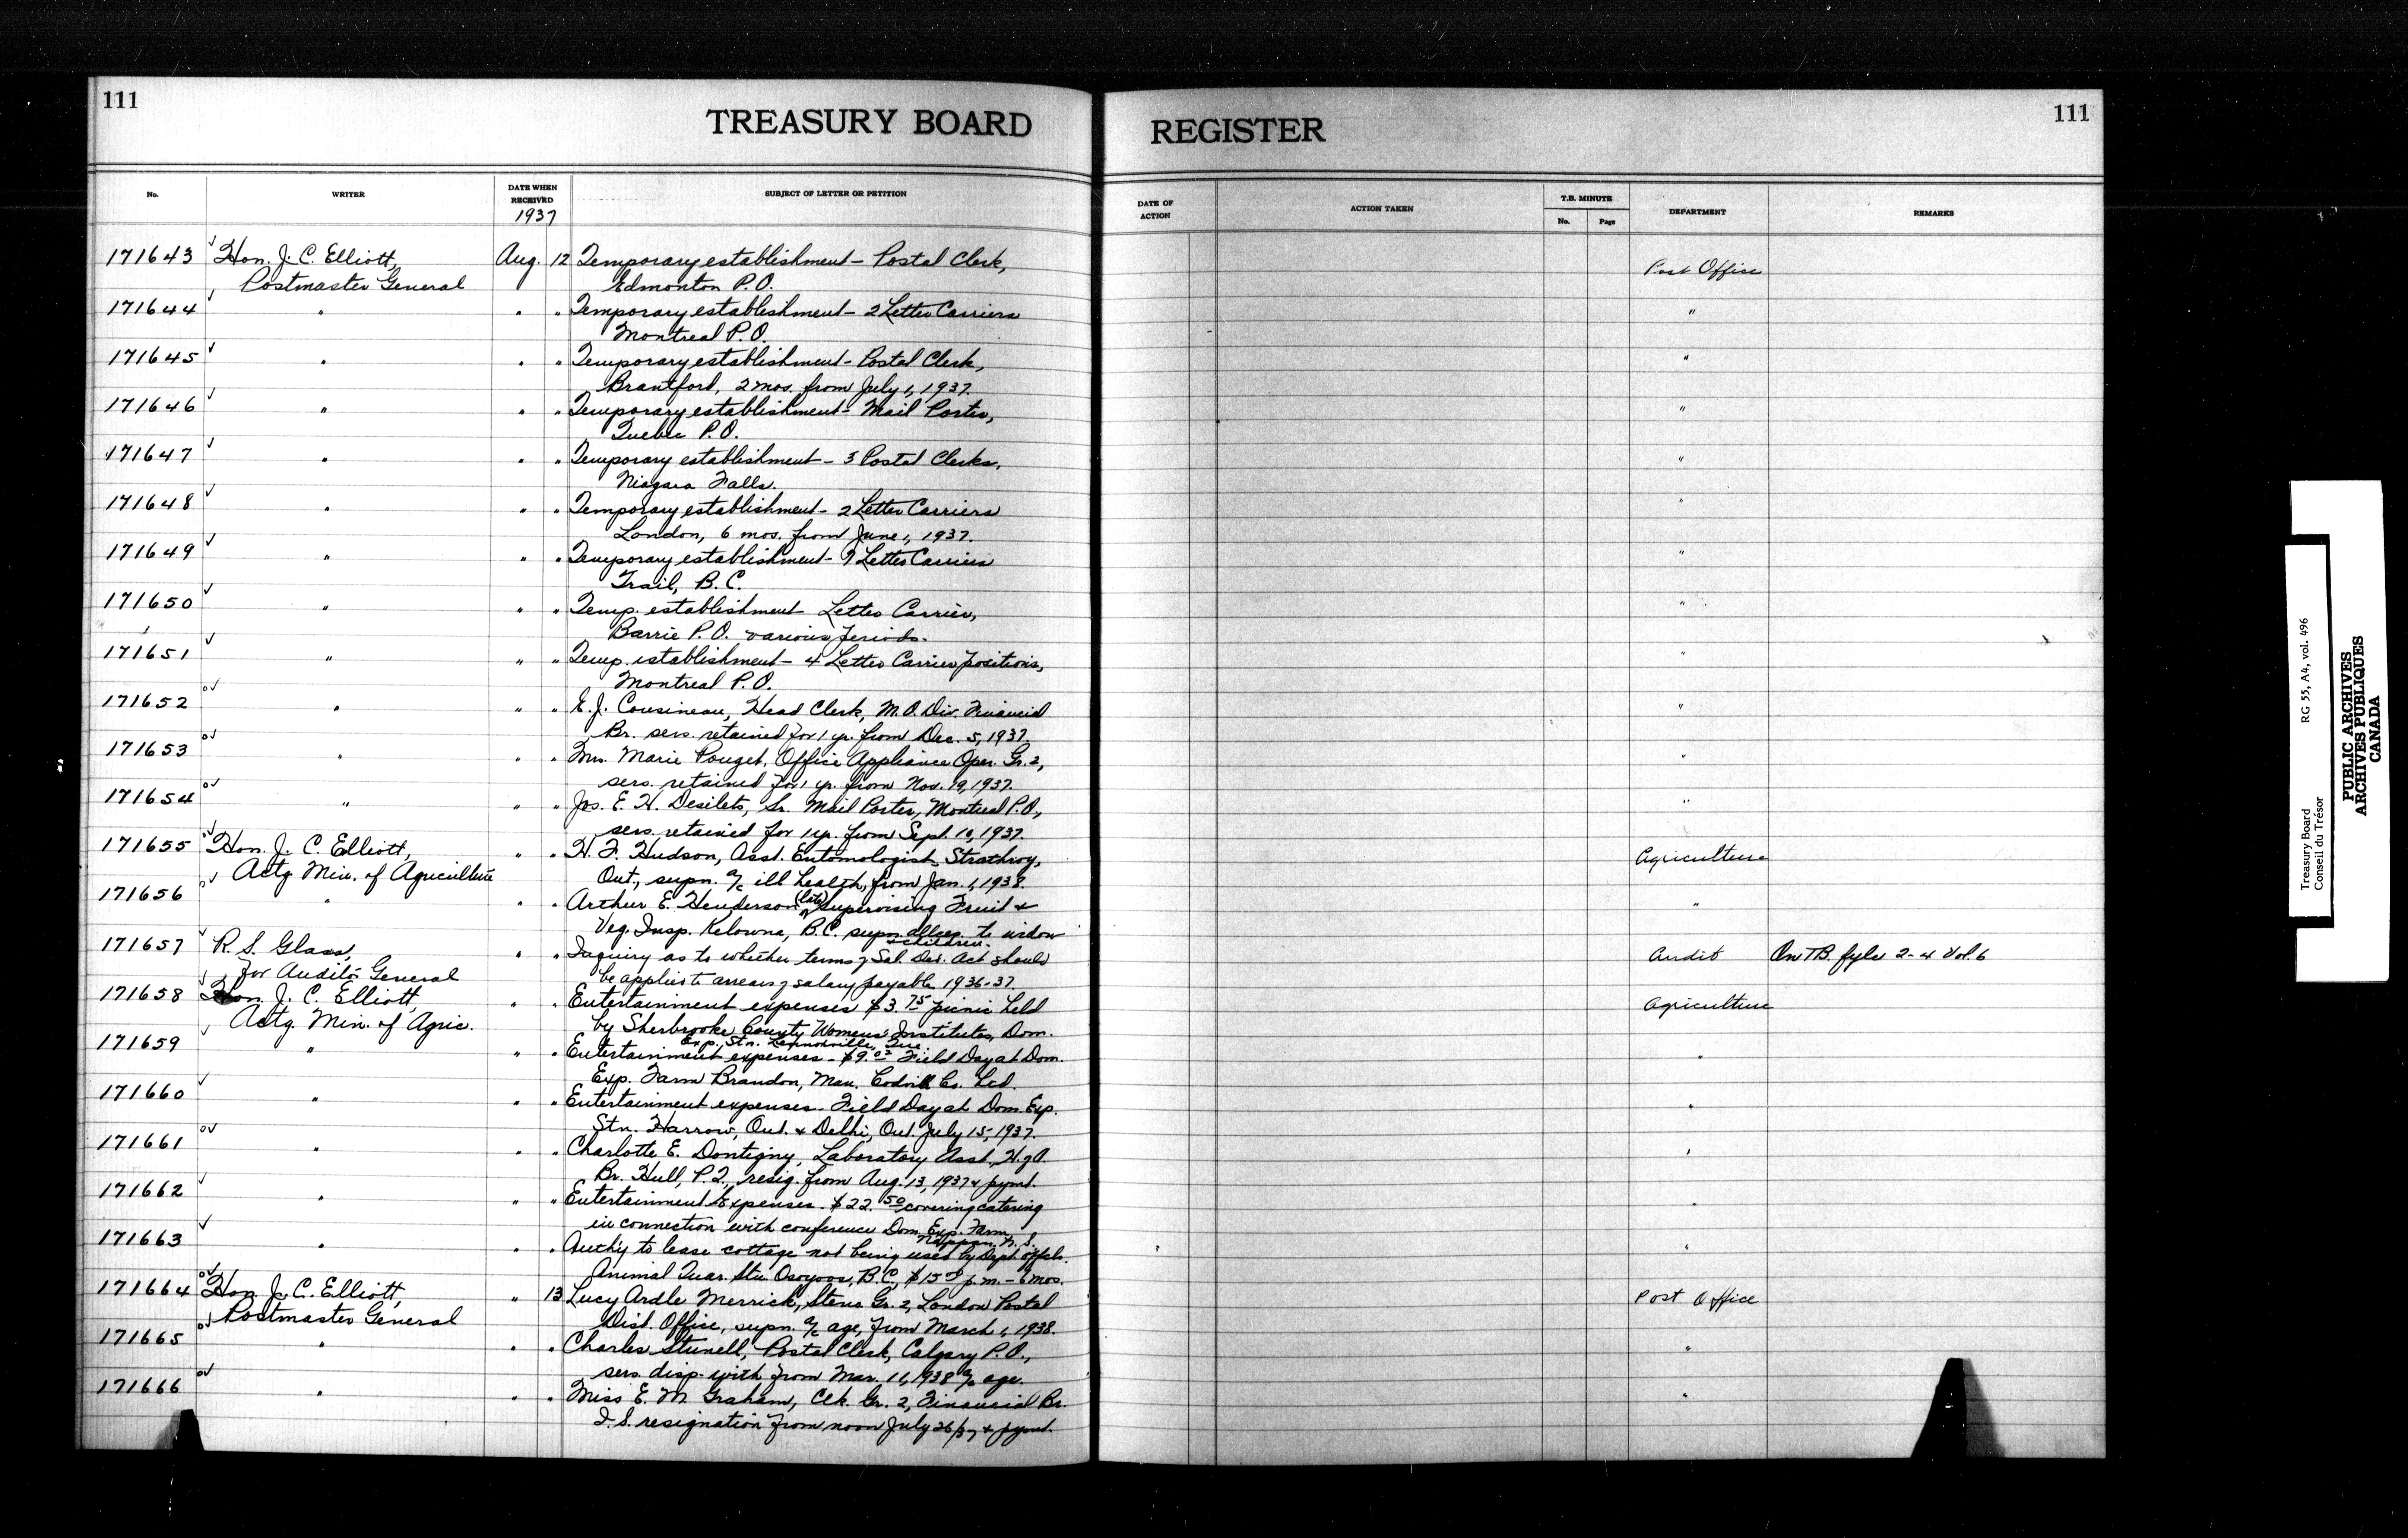 111
TREASURY BOARD
REGISTER
111
No.
WRITER
DATE WHEN RECEIVED
1937
SUBJECT OF LETTER OR PETITION
DATE OF ACTION
ACTION TAKEN
T.B. MINUTE
No.
Page
DEPARTMENT
REMARKS
171643 Hon. J. C. Elliott, Aug. 12 Temporary establishment - Postal Clerk, Post Office
Postmaster General Edmonton P.O.
171644 " " " Temporary establishment - 2 Letter Carriers "
Montreal P.O.
171645 " " " Temporary establishment - Postal Clerk, "
Brantford, 2 mos. from July 1, 1937.
171646 " " " Temporary establishment - Mail Porter, "
Quebec P.O.
171647 " " " Temporary establishment - 3 Postal Clerks, "
Niagara Falls.
171648 " " " Temporary establishment - 2 Letter Carriers "
London, 6 mos. from June 1, 1937.
171649 " " " Temporary establishment - 7 Letter Carriers "
Trail, B.C.
171650 " " " Temp. establishment Letter Carrier, "
Barrie P.O. various periods.
171651 " " " Temp. establishment - 4 Letter Carrier positions, "
Montreal P.O.
171652 " " " E. J. Cousineau, Head Clerk, M.O. Div. Financial "
Br. sers. retained for 1 yr. from Dec. 5, 1937.
171653 " " " Mrs. Marie Pouget, Office Appliance Oper. Gr. 2, "
sers. retained for 1 yr. from Nov. 19, 1937.
171654 " " " Jos. E. H. Desilets, Sr. Mail Porter, Montreal P.O., "
sers. retained for 1 yr. from Sept. 10, 1937.
171655 Hon. J. C. Elliott, " " H. F. Hudson, Asst. Entomologist, Strathroy, Agriculture
Actg. Min. of Agriculture Ont., supn. a/c ill health, from Jan. 1, 1938.
171656 " " " Arthur E. Henderson (late) Supervising Fruit & "
Veg. Insp. Kelowna, B.C. supn. allces. to widow
& children.
171657 R. S. Glass, " " Inquiry as to whether terms of Sal. Ded. Act should Audit On T.B. fyle 2-4 Vol. 6
for Auditor General be applied to arrears of salary payable 1936-37.
171658 Hon. J. C. Elliott, " " Entertainment expenses $3.75 picnic held Agriculture
Actg. Min. of Agric. by Sherbrooke County Womens' Institutes, Dom.
Exp. Stn. Lennoxville, Que.
171659 " " " Entertainment expenses - $9.02 Field Day at Dom. "
Exp. Farm Brandon, Man. Codvill Co. Ltd.
171660 " " " Entertainment expenses - Field Day at Dom. Exp. "
Stn. Harrow, Ont. & Delhi, Ont. July 15, 1937.
171661 " " " Charlotte E. Dontigny, Laboratory Asst., H. of A. "
Br. Hull, P.Q., resig. from Aug. 13, 1937 & pymt.
171662 " " " Entertainment Expenses. $22.50 covering catering "
in connection with conference Dom. Exp. Farm
Nappan, N.S.
171663 " " " Auth'y to lease cottage not being used by Dept. offcls. "
Animal Quar. Stn. Osoyoos, B.C., $15.00 p.m. - 6 mos.
171664 Hon. J. C. Elliott, " 13 Lucy Ardle Merrick, Steno. Gr. 2, London Postal Post Office
Postmaster General Dist. Office, supn. a/c age, from March 1, 1938.
171665 " " " Charles Stunell, Postal Clerk, Calgary P.O., "
sers. disp. with from Mar. 11, 1938 a/c age.
171666 " " " Miss E. M. Graham, Clk. Gr. 2, Financial Br. "
I.S. resignation from noon July 26/37 & pymt.
Treasury Board RG 55, A4, vol. 496
Conseil du Trésor
PUBLIC ARCHIVES
ARCHIVES PUBLIQUES
CANADA